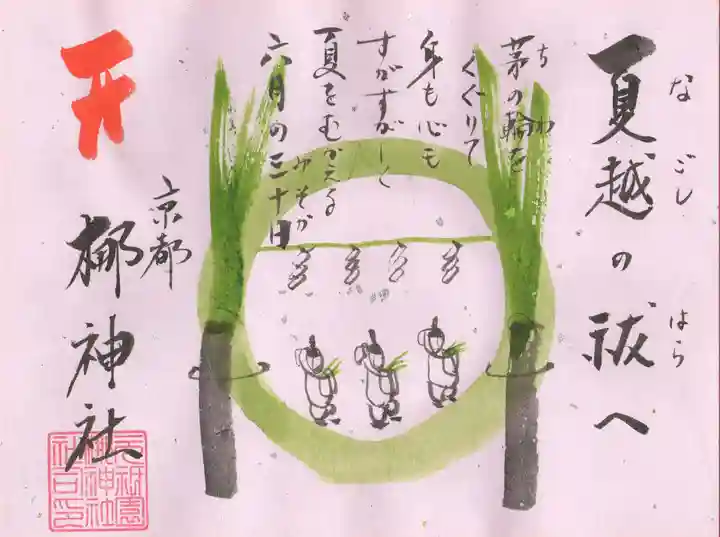 夏越の祓へ
なごし はら
茅の輪を
ちわ
くぐりて
身も心も
すがすがしく
夏をむかえる
六月の三十日
みそか
京都
梛神社
元祇園
梛神社
社司印